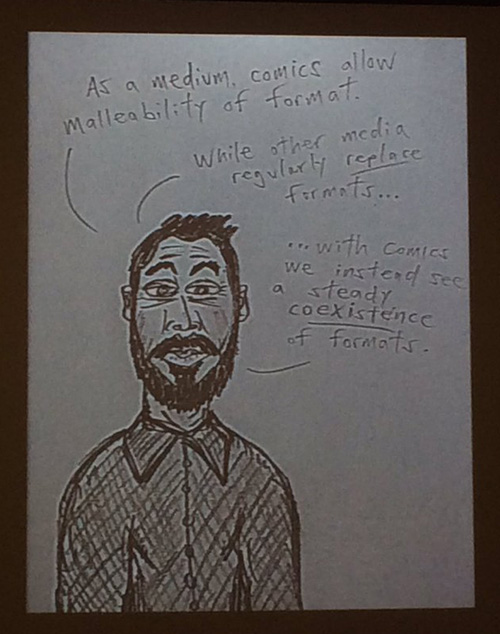 As a medium, comics allow
malleability of format.
While other media
regularly replace
formats...
...with comics
we instead see
a steady
coexistence
of formats.